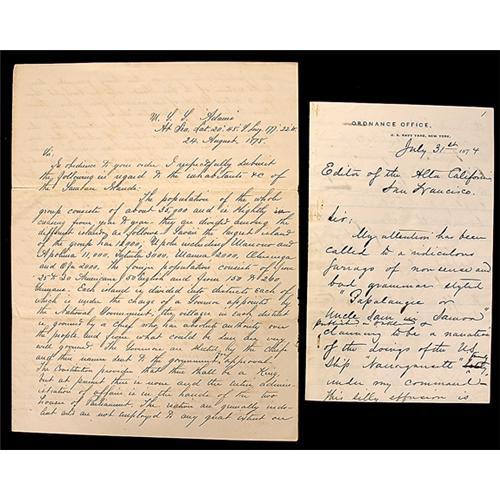 U. S. S. Adams
At Sea, Lat. 20° 45' S Long 177° 22 W.
24 August 1878.
Sir,
In obedience to your order I respectfully submit
the following in regard to the inhabitants &c of
the Samoan Islands.
The population of the whole
group consists of about 35,000 and is slightly in-
creasing from year to year. they are divided among the
different islands as follows Savaii the largest island
of the group has 12,000, Upolu including Manono and
Apolima 11,000, Tutuila 3000, Manua 2000,
and Ofu 2000. The foreign population consists of from
25 to 30 Americans 50 English and from 150 to 200
Germans. Each island is divided into districts each of
which is under the charge of a Governor appointed by
the National Government, the villages in each district
is governed by a Chief who has absolute authority over
the people, and from what could be seen are very
well governed. The Governors are selected by the Chiefs
and their names sent to the government for approval.
The Constitution provides that there shall be a King,
but at present there is none and the entire admin-
istration of affairs is in the hands of the two
Houses of Parliament. The natives are generally indo-
lent and are not employed to any great extent on
ORDNANCE OFFICE,
U. S. NAVY YARD, NEW YORK,
July 31st 1874
Editor of the Alta California
San Francisco.
Sir:
My attention has been
called to a ridiculous
farrago of nonsense and
bad grammar styled
"Papalangee or
Uncle Sam in Samoa"
published in Oakland &
claiming to be a narration
of the doings of the U.S.
Ship "Narragansett"
under my command
This silly effusion is